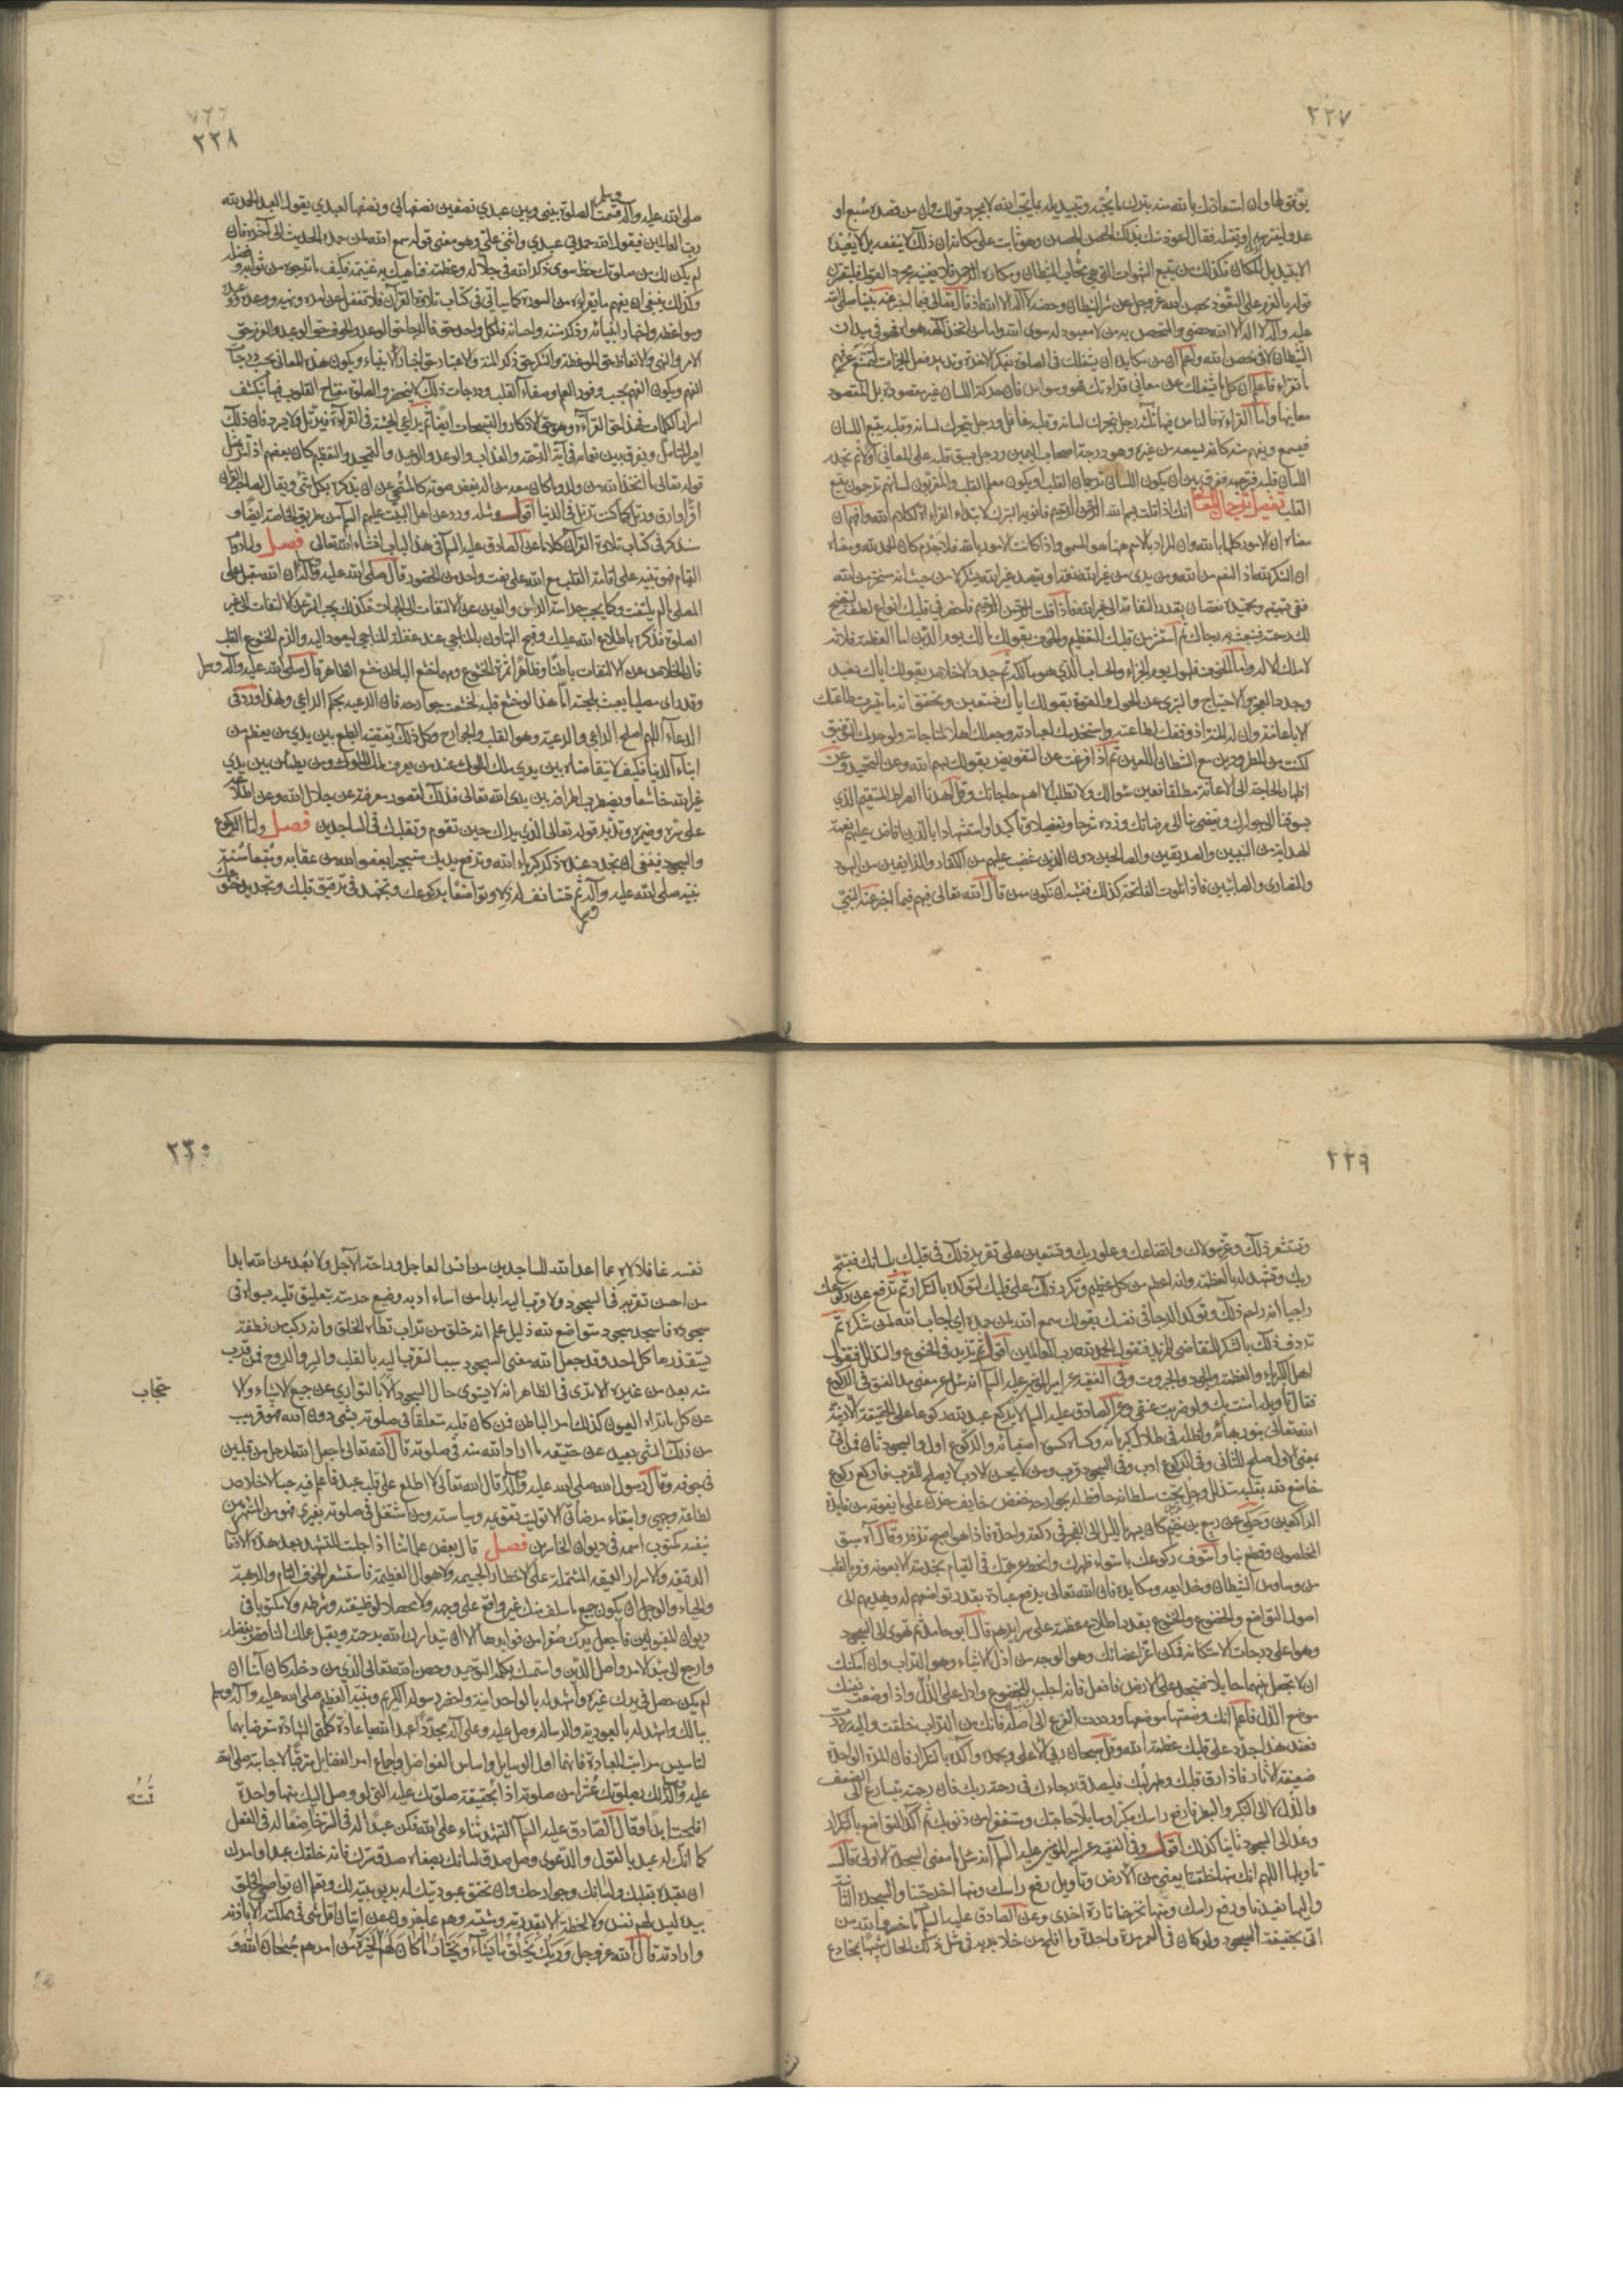 ٢٢٧
يوثق لها وان استعاذتك بالله منه بترك ما يحبه وتبديله بما يحب الله لا بمجرد قولك وان من قصده سبع او
عدو ليفترسه او يقتله فقال اعوذ منك بذلك الحصن الحصين وهو ثابت على مكانه ان ذلك لا ينفعه بل لا يفيده
الا تبديل المكان فكذلك من يتبع الشهوات التي هي محاب الشيطان ومكاره الرحمن فلا يغنيه مجرد القول فليقترن
قوله بالعزم على التعوذ بحصن الله عز وجل عن شر الشيطان وحصنه لا اله الا الله اذ قال تعالى فيما اخبر عنه نبينا صلى الله
عليه وآله لا اله الا الله حصني والمتحصن به من لا معبود له سوى الله واما من اتخذ الهه هواه فهو في ميدان
الشيطان لا في حصن الله واعلم ان من مكايده ان يشغلك في الصلوة بفكر الاخرة وتدبير فعل الخيرات لتمتنع عن فهم
ما تقراء فاعلم ان كل ما يشغلك عن معاني قراءتك فهو وسواس فان حركة اللسان غير مقصودة بل المقصود
معانيها واما القراءة فالناس فيها ثلثة رجل يتحرك لسانه وقلبه غافل ورجل يتحرك لسانه وقلبه يتبع اللسان
فيسمع ويفهم منه كانه يسمعه من غيره وهو درجة اصحاب اليمين ورجل يسبق قلبه على المعاني اولا ثم يخدم
اللسان قلبه فترجمه ففرق بين ان يكون اللسان ترجمان القلب او يكون معلم القلب والمقربون لسانهم ترجمان يتبع
القلب تفصيل ترجمان المعاني انك اذا قلت بسم الله الرحمن الرحيم فانو به التبرك لابتداء القراءة لكلام الله وافهم ان
معناه ان الامور كلها بالله وان المراد بالاسم ههنا هو المسمى واذا كانت الامور بالله فلا جرم كان الحمد لله ومعناه
ان الشكر لله اذ النعم من الله ومن يرى من غير الله نعمة او يقصد غير الله بشكر لا من حيث انه مسخر من الله
ففي تسميته وتحميده نقصان بقدر التفاته الى غير الله فاذا قلت الرحمن الرحيم فاحضر في قلبك انواع لطفه لتتضح
لك رحمته فينبعث به رجاك ثم استثر من قلبك التعظيم والخوف بقولك مالك يوم الدين اما العظمة فلانه
لا ملك الا له واما الخوف فلهول يوم الجزاء والحساب الذي هو مالكه ثم جدد الاخلاص بقولك اياك نعبد
وجدد العجز والاحتياج والتبري عن الحول والقوة بقولك اياك نستعين وتحقق انه ما تيسرت طاعتك
الا باعانته وان له المنة اذ وفقك لطاعته واستخدمك لعبادته وجعلك اهلا لمناجاته ولو حرمك التوفيق
لكنت من المطرودين مع الشيطان اللعين ثم اذا فرغت عن التفويض بقولك بسم الله وعن التحميد وعن
اظهار الحاجة الى الاعانة مطلقا فعين سؤالك ولا تطلب الا اهم حاجاتك وقل اهدنا الصراط المستقيم الذي
يسوقنا الى جوارك ويفضي بنا الى مرضاتك وزده شرحا وتفصيلا وتأكيدا واستشهادا بالذين افاض عليهم نعمة
الهداية من النبيين والصديقين والصالحين دون الذين غضب عليهم من الكفار والزايغين من اليهود
والنصارى والصابئين فاذا تلوت الفاتحة كذلك فتشبه ان تكون ممن قال الله تعالى فيهم فيما اخبر عنه النبي
٢٢٨
صلى الله عليه وآله وسلم قسمت الصلوة بيني وبين عبدي نصفين نصفها لي ونصفها لعبدي يقول العبد الحمد لله
رب العالمين فيقول الله حمدني عبدي واثنى علي وهو معنى قوله سمع الله لمن حمده الحديث الى آخره فان
لم يكن لك من صلوتك حظ سوى ذكر الله في جلاله وعظمته فناهيك به غنيمة فكيف ما ترجوه من ثوابه وفضله
وكذلك ينبغي ان يفهم ما يقراءه من السورة كما سياتي في كتاب تلاوة القرآن فلا تغفل عن امره ونهيه ووعده ووعيده
ومواعظه واخبار انبيائه وذكر مننه واحسانه فلكل واحد حق فالرجاء حق الوعد والخوف حق الوعيد والعزم حق
الامر والنهي والاتعاظ حق الموعظة والشكر حق ذكر المنة والاعتبار حق اخبار الانبياء ويكون هذه المعاني بحسب درجات
الفهم ويكون الفهم بحسب وفور العلم وصفاء القلب ودرجات ذلك لا ينحصر والصلوة مفتاح القلوب فيها ينكشف
اسرار الكلمات فهذا حق القراءة وهو حق الاذكار والتسبيحات ايضا ثم يراعي الهيئة في القراءة فيرتل ولا يجرد فان ذلك
ايسر للتأمل ويفرق بين نغماته في آية الرحمة والعذاب والوعد والوعيد والتحميد والتعظيم كان بعضهم اذا مر بمثل
قوله تعالى ما اتخذ الله من ولد وما كان معه من اله يغض صوته كالمستحي عن ان يذكره بكل شيء ويقال لصاحب القرآن
اقرأ وارق ورتل كما كنت ترتل في الدنيا اقول ومثله ورد عن اهل البيت عليهم السلام من طريق الخاصة ايضا و
سنذكر في كتاب تلاوة القرآن كلاما عن الصادق عليه السلام في هذا الباب انشاء الله تعالى فصل واما دوام
القيام فهو تنبيه على اقامة القلب مع الله على نعت واحد من الحضور قال صلى الله عليه وآله ان الله مقبل على
المصلي ما لم يلتفت وكما يجب حراسة الراس والعين عن الالتفات الى الجهات فكذلك يجب السر عن الالتفات الى غير
الصلوة فذكره باطلاع الله عليك وقبح التهاون بالمناجي عند غفلة المناجي ليعود اليه والزم الخشوع القلب
فان الخلاص عن الالتفات باطنا وظاهرا ثمرة الخشوع ومهما خشع الباطن خشع الظاهر قال صلى الله عليه وآله وسلم
وقد راى مصليا يعبث بلحيته اما هذا لو خشع قلبه لخشعت جوارحه فان الرعية بحكم الراعي ولهذا ورد في
الدعاء اللهم اصلح الراعي والرعية وهو القلب والجوارح وكل ذلك يقتضيه الطبع بين يدي من يعظم من
ابناء الدنيا فكيف لا يتقاضاه بين يدي ملك الملوك عند من يعرف ملك الملوك ومن يطمئن بين يدي
غير الله خاشعا ويضطرب اطرافه بين يدي الله تعالى فذلك لقصور معرفته عن جلال الله وعن اطلاعه
على سره وضميره وتدبر قوله تعالى الذي يراك حين تقوم وتقلبك في الساجدين فصل واما الركوع
والسجود فينبغي ان يجدد عنده ذكر كبرياء الله وترفع يديك مستجيرا بعفو الله من عقابه ومتبعا سنة
نبيه صلى الله عليه وآله وسلم ثم تستانف له ذلا وتواضعا بركوعك وتجتهد في ترقيق قلبك وتجديد خشوعك
٢٢٩
وتستشعر ذلك وعز مولاك واتضاعك وعلو ربك وتستعين على تقرير ذلك في قلبك بلسانك فتسبح
ربك وتشهد له بالعظمة وانه اعظم من كل عظيم وتكرر ذلك على قلبك لتوكده بالتكرار ثم ترفع عن ركوعك
راجيا انه راحم ذلك وتوكد الرجاء في نفسك بقولك سمع الله لمن حمده اي اجاب الله لمن شكره ثم
تردف ذلك بالشكر المتقاضي للمزيد فتقول الحمد لله رب العالمين اقول ثم تزيد في الخشوع والتذلل فتقول
اهل الكبرياء والعظمة والجود والجبروت وفي الفقيه عن امير المؤمنين عليه السلام انه سئل عن معنى مد العنق في الركوع
فقال تأويله آمنت بك ولو ضربت عنقي وعن الصادق عليه السلام لا يركع عبد لله ركوعا على الحقيقة الا زينه
الله تعالى بنور بهائه واظله في ظلال كبريائه وكساه كسوة اصفيائه والركوع اول والسجود ثان فمن اتى
بمعنى الاول صلح للثاني وفي الركوع ادب وفي السجود قرب ومن لا يحسن الادب لا يصلح للقرب فاركع ركوع
خاضع لله بقلبه متذلل وجل تحت سلطانه خافض له بجوارحه خفض خايف حزن على ما يفوته من فايدة
الراكعين وحكي عن ربيع بن خثيم كان يسهر بالليل الى الفجر في ركعة واحدة فاذا هو اصبح تزفر وقال آه سبق
المخلصون وقطع بنا واستوف ركوعك باستواء ظهرك وانحط عن همتك في القيام بخدمته الا بعونه وفر بالقلب
من وساوس الشيطان وخدايعه ومكايده فان الله تعالى يرفع عباده بقدر تواضعهم له ويهديهم الى
اصول التواضع والخضوع والخشوع بقدر اطلاع عظمته على سرايرهم قال ابو حامد ثم تهوي الى السجود
وهو اعلى درجات الاستكانة فمكن اعز اعضائك وهو الوجه من اذل الاشياء وهو التراب وان امكنك
ان لا تجعل بينهما حايلا فتسجد على الارض فافعل فانه اجلب للخضوع وادل على الذل واذا وضعت نفسك
موضع الذل فاعلم انك وضعتها موضعها ورددت الفرع الى اصله فانك من التراب خلقت واليه رددت
فعند هذا جدد على قلبك عظمة الله وقل سبحان ربي الاعلى وبحمده واكده بالتكرار فان المرة الواحدة
ضعيفة الآثار فاذا رق قلبك وطهر لبك فليصدق رجاءك في رحمة ربك فان رحمته يتسارع الى الضعف
والذل لا الى التكبر والبطر فارفع راسك مكبرا وسايلا حاجتك ومستغفرا من ذنوبك ثم اكد التواضع بالتكرار
وعد الى السجود ثانيا كذلك اقول وفي الفقيه عن امير المؤمنين عليه السلام انه سئل ما معنى السجدة الاولى قال
تاويلها اللهم انك منها خلقتنا يعني من الارض وتاويل رفع راسك ومنها اخرجتنا والسجدة الثانية
واليها تعيدنا ورفع راسك ومنها تخرجنا تارة اخرى وعن الصادق عليه السلام ما خسر والله من
اتى بحقيقة السجود ولو كان في العمر مرة واحدة وما افلح من خلا بربه في مثل ذلك الحال شبيها بمخادع
٢٣٠
نفسه غافلا لاه عما اعد الله للساجدين من انس العاجل وراحة الآجل ولا بعد عن الله ابدا
من احسن تقربه في السجود ولا قرب اليه ابدا من اساء ادبه وضيع حرمته بتعليق قلبه بسواه في
سجوده فاسجد سجود متواضع لله ذليل علم انه خلق من تراب تطأه الخلق وانه ركب من نطفة
يستقذرها كل احد وقد جعل الله معنى السجود سبب التقرب اليه بالقلب والسر والروح فمن قرب
منه بعد من غيره الا ترى في الظاهر انه لا يستوي حال السجود الا بالتواري عن جميع الاشياء والا
حتجاب
عن كل ما تراه العيون كذلك امر الباطن فمن كان قلبه متعلقا في صلوته بشيء دون الله فهو قريب
من ذلك الشيء بعيد عن حقيقة ما اراد الله منه في صلوته قال الله تعالى ما جعل الله لرجل من قلبين
في جوفه وقال رسول الله صلى الله عليه وآله قال الله تعالى لا اطلع على قلب عبد فاعلم فيه حب الاخلاص
لطاعة وجهي وابتغاء مرضاتي الا توليت تقويمه وسياسته ومن اشتغل في صلوته بغيري فهو من المستهزئين
بنفسه مكتوب اسمه في ديوان الخاسرين فصل قال بعض علمائنا اذا جلست للتشهد بعد هذه الافعال
الدقيقة والاسرار العميقة المشتملة على الاخطار الجسيمة والاهوال العظيمة فاستشعر الخوف التام والرهبة
والحياء والوجل ان يكون جميع ما سلف منك غير واقع على وجهه ولا محصلا لوظيفته وشرطه ولا مكتوبا في
ديوان المقبولين فاجعل يدك صفرا من فوايدها الا ان يتداركك الله برحمته ويقبل عملك الناقص بفضله
وارجع الى مبدأ الامر واصل الدين واستمسك بكلمة التوحيد وحصن الله تعالى الذي من دخله كان آمنا ان
لم يكن حصل في يدك غيره واشهد له بالوحدانية واحضر رسوله الكريم ونبيه العظيم صلى الله عليه وآله وسلم
ببالك واشهد له بالعبودية والرسالة وصل عليه وعلى آله مجددا عهد الله باعادة كلمتي الشهادة متعرضا بهما
لتاسيس مراتب العبادة فانهما اول الوسايل واساس الفواضل وجماع امر الفضايل مترقبا لاجابته صلى الله
عليه وآله لك بصلوتك عشرا من صلوته اذا قمت بحقيقة صلوتك عليه التي لو وصل اليك منها واحدة
افلحت ابدا وقال الصادق عليه السلام التشهد ثناء على الله فكن عبدا له في السر خاضعا له في الفعل
كما انك له عبد بالقول والدعوى وصل صدق لسانك بصفاء صدق سرك فانه خلقك عبدا وامرك
ان تعبده بقلبك ولسانك وجوارحك وان تحقق عبوديتك له بربوبيته لك وتعلم ان نواصي الخلق
بيده ليس لهم نفس ولا لحظة الا بقدرته ومشيته وهم عاجزون عن اتيان اقل شيء في مملكته الا باذنه
وارادته قال الله عز وجل وَرَبُّكَ يَخْلُقُ مَا يَشَاءُ وَيَخْتَارُ مَا كَانَ لَهُمُ الْخِيَرَةُ من امرهم سُبْحَانَ اللهِ وَ